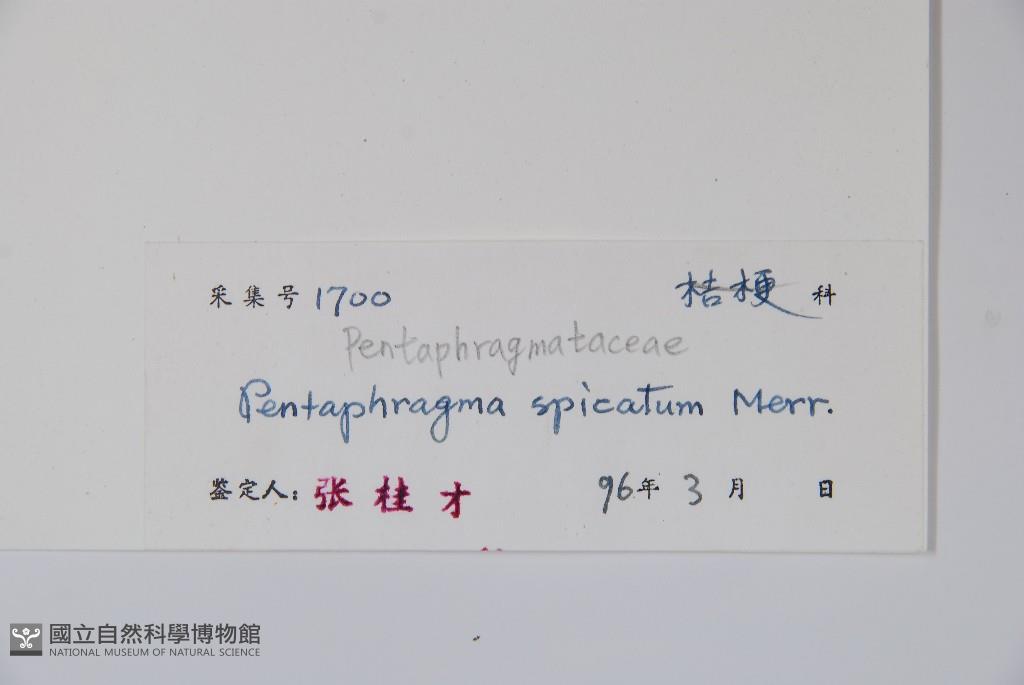 采集号 1700 桔梗 科
Pentaphragmataceae
Pentaphragma spicatum Merr.
鉴定人: 张桂才 96年 3月 日
國立自然科學博物館
NATIONAL MUSEUM OF NATURAL SCIENCE